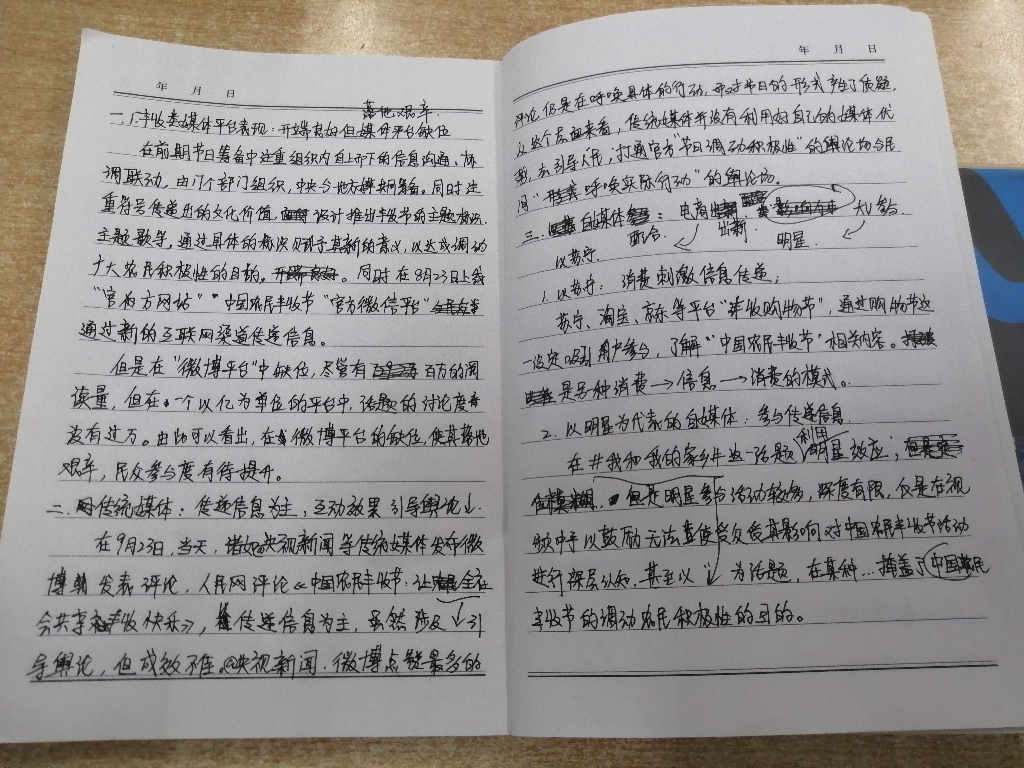 年 月 日
落地艰辛.
一、丰收季媒体平台表现：开端良好但媒体平台缺位
在前期节日筹备中注重组织内自上而下的信息沟通、协
调联动，由门个部门组织，中央与地方媒共同筹备。同时注
重符号传递出的文化价值，设计推出丰收节的主题标识、
主题歌等，通过具体的标识赋予其新的意义，以达成调动
广大农民积极性的目的。同时在8月23日上线
“官方网站”“中国农民丰收节”官方微信平台”
通过新的互联网渠道传递信息。
但是在“微博平台”中缺位，尽管有百万的阅
读量，但在一个以亿为单位的平台中，话题的讨论度
没有过万。由此可以看出，在微博平台的缺位，使其落地
艰辛，民众参与度有待提升。
二、传统媒体：传递信息为主，互动效果 引导舆论↓.
在9月23日，当天，诸如央视新闻等传统媒体发布微
博 发表评论，人民网评论《中国农民丰收节：让全社
会共享丰收快乐》，传递信息为主，虽然涉及 引
导舆论，但成效不佳。@央视新闻.微博点赞最多的
年 月 日
评论，仍是在呼唤具体的行动，而对节日的形式产生了质疑.
从这个层面来看，传统媒体并没有利用好自己的媒体优
势，去引导人民，打通官方“节日调动积极性”的舆论场与民
间“呼唤实际行动”的舆论场。
三. 自媒体：电商 大V参与.
配合. 出新. 明星.
以苏宁.
1. 以苏宁：消费刺激信息传递；
苏宁、淘宝、京东等平台“丰收购物节”，通过购物节这
一设定吸引用户参与，了解“中国农民丰收节”相关内容。
是另种消费→信息→消费的模式。
2. 以明星为代表的自媒体：参与传递信息
利用
在#我和我的家乡件这一话题 明星效应；
但是明星参与活动较多，深度有限，仅是在视
频中予以鼓励无法直使受众受其影响对中国农民丰收节活动
进行深层认知，甚至以“ ”为话题，在某种…掩盖了中国农民
丰收节的调动农民积极性的目的。